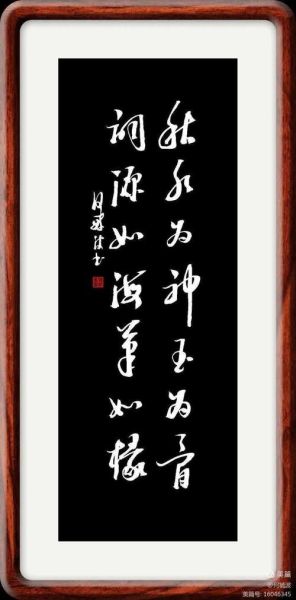 秋水为神玉为骨
词源如海筆如椽
美篇
美篇号: 16046345